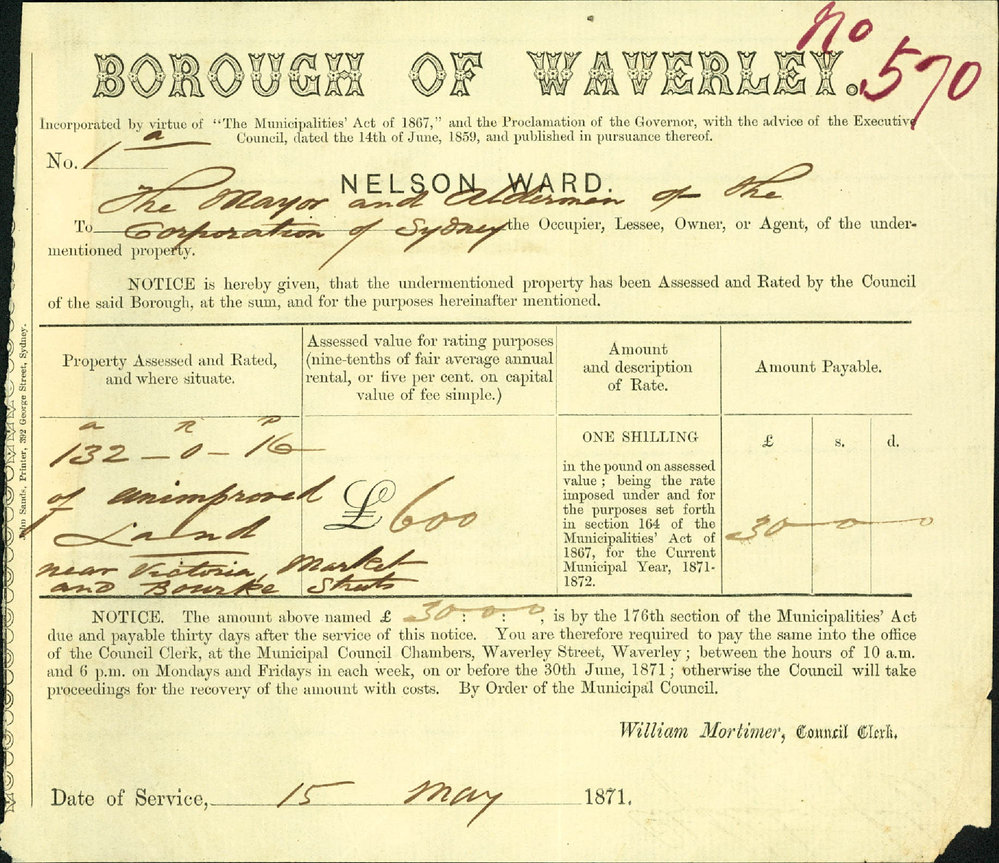 No 570
BOROUGH OF WAVERLEY.
Incorporated by virtue of "The Municipalities' Act of 1867," and the Proclamation of the Governor, with the advice of the Executive
Council, dated the 14th of June, 1859, and published in pursuance thereof.
No. 1a
NELSON WARD.
The Mayor and Aldermen of the
To Corporation of Sydney the Occupier, Lessee, Owner, or Agent, of the under-
mentioned property.
NOTICE is hereby given, that the undermentioned property has been Assessed and Rated by the Council
of the said Borough, at the sum, and for the purposes hereinafter mentioned.
Property Assessed and Rated,
and where situate.
Assessed value for rating purposes
(nine-tenths of fair average annual
rental, or five per cent. on capital
value of fee simple.)
Amount
and description
of Rate.
Amount Payable.
a R P
132 - 0 - 16
of unimproved
Land
near Victoria, Market
and Bourke Streets
£600
ONE SHILLING
in the pound on assessed
value; being the rate
imposed under and for
the purposes set forth
in section 164 of the
Municipalities' Act of
1867, for the Current
Municipal Year, 1871-
1872.
£ s. d.
30 - 0 - 0
NOTICE. The amount above named £ 30 : 0 : 0, is by the 176th section of the Municipalities' Act
due and payable thirty days after the service of this notice. You are therefore required to pay the same into the office
of the Council Clerk, at the Municipal Council Chambers, Waverley Street, Waverley; between the hours of 10 a.m.
and 6 p.m. on Mondays and Fridays in each week, on or before the 30th June, 1871; otherwise the Council will take
proceedings for the recovery of the amount with costs. By Order of the Municipal Council.
William Mortimer, Council Clerk.
Date of Service, 15 May 1871.
John Sands, Printer, 392 George Street, Sydney.